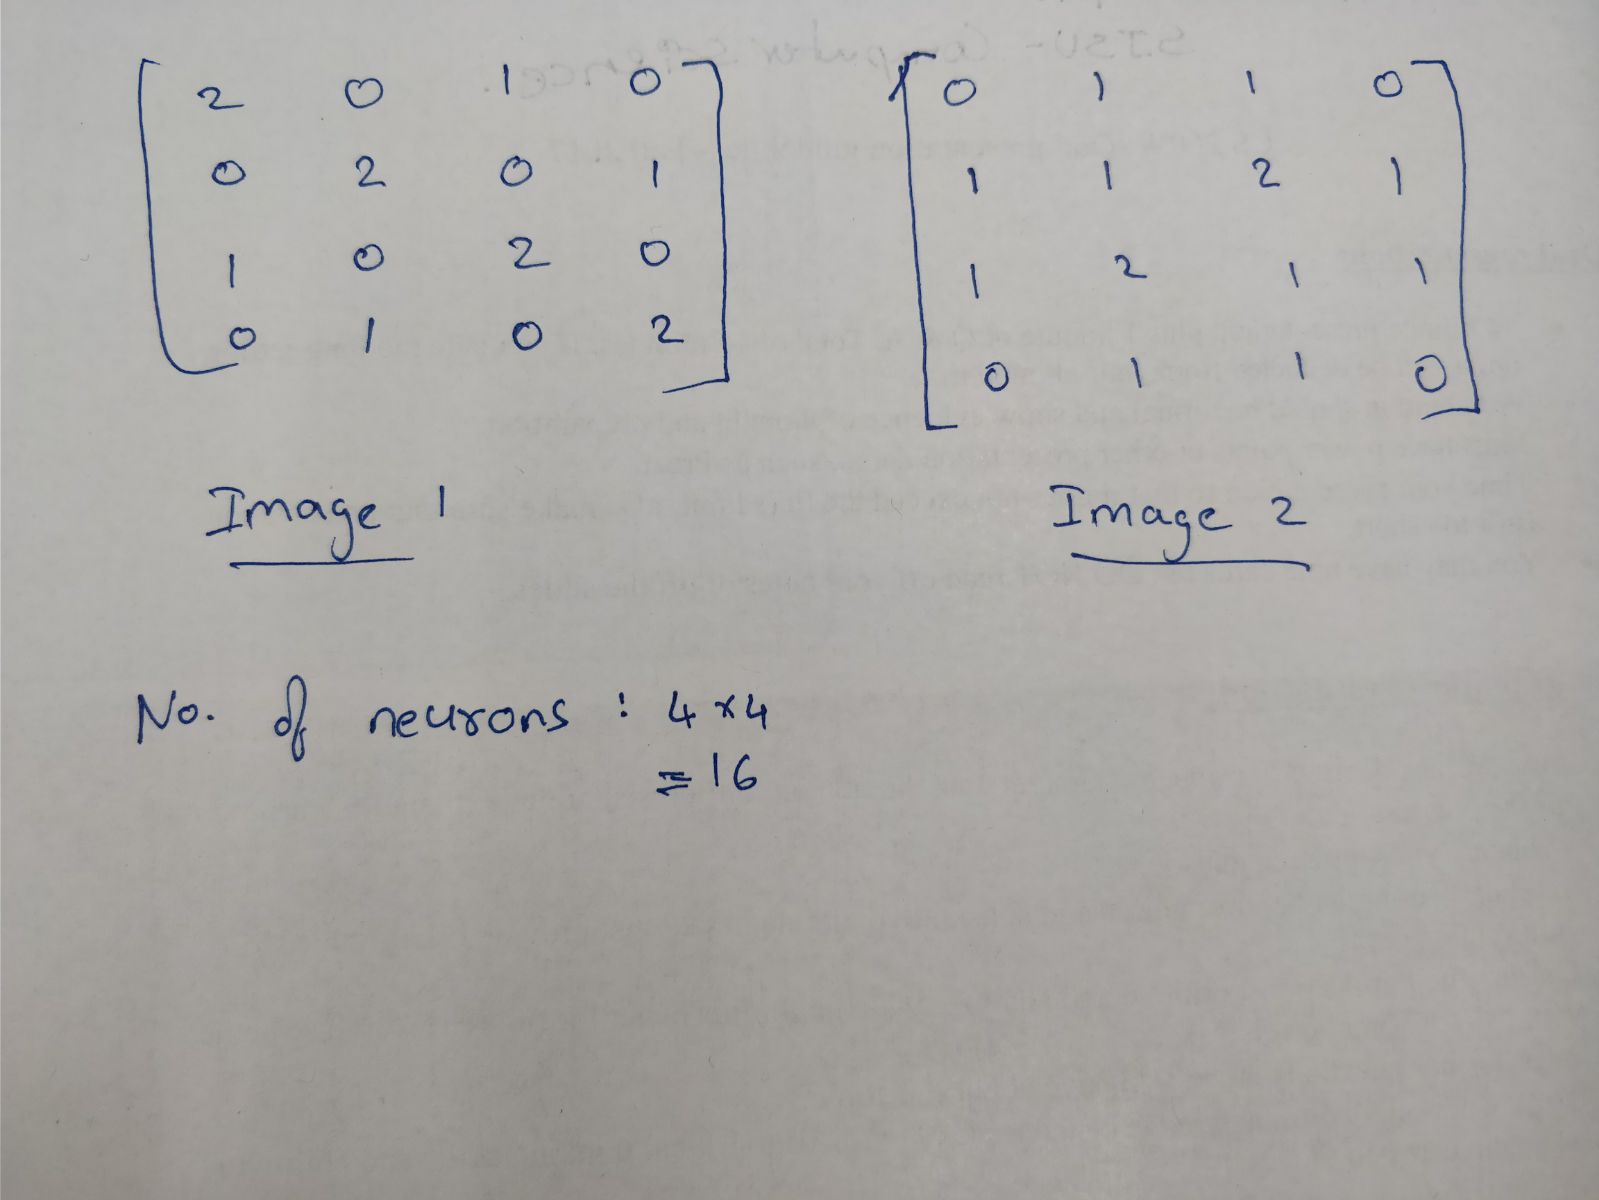 2 0 1 0
0 2 0 1
1 0 2 0
0 1 0 2
Image 1
0 1 1 0
1 1 2 1
1 2 1 1
0 1 1 0
Image 2
No. of neurons : 4 x 4
= 16